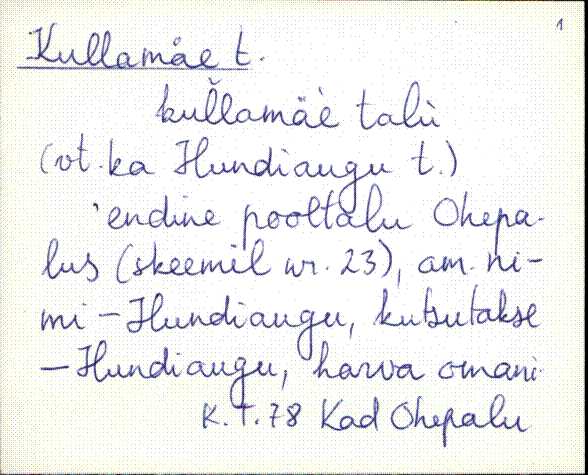 1
Kullamäe t.
kul̆lamäè talù
(vt. ka Hundiaugu t.)
'endine pooltalu Ohepa-
lus (skeemil nr. 23), am. ni-
mi - Hundiaugu, kutsutakse
- Hundiaugu, harva omani-
K. T. 78 Kad Ohepalu